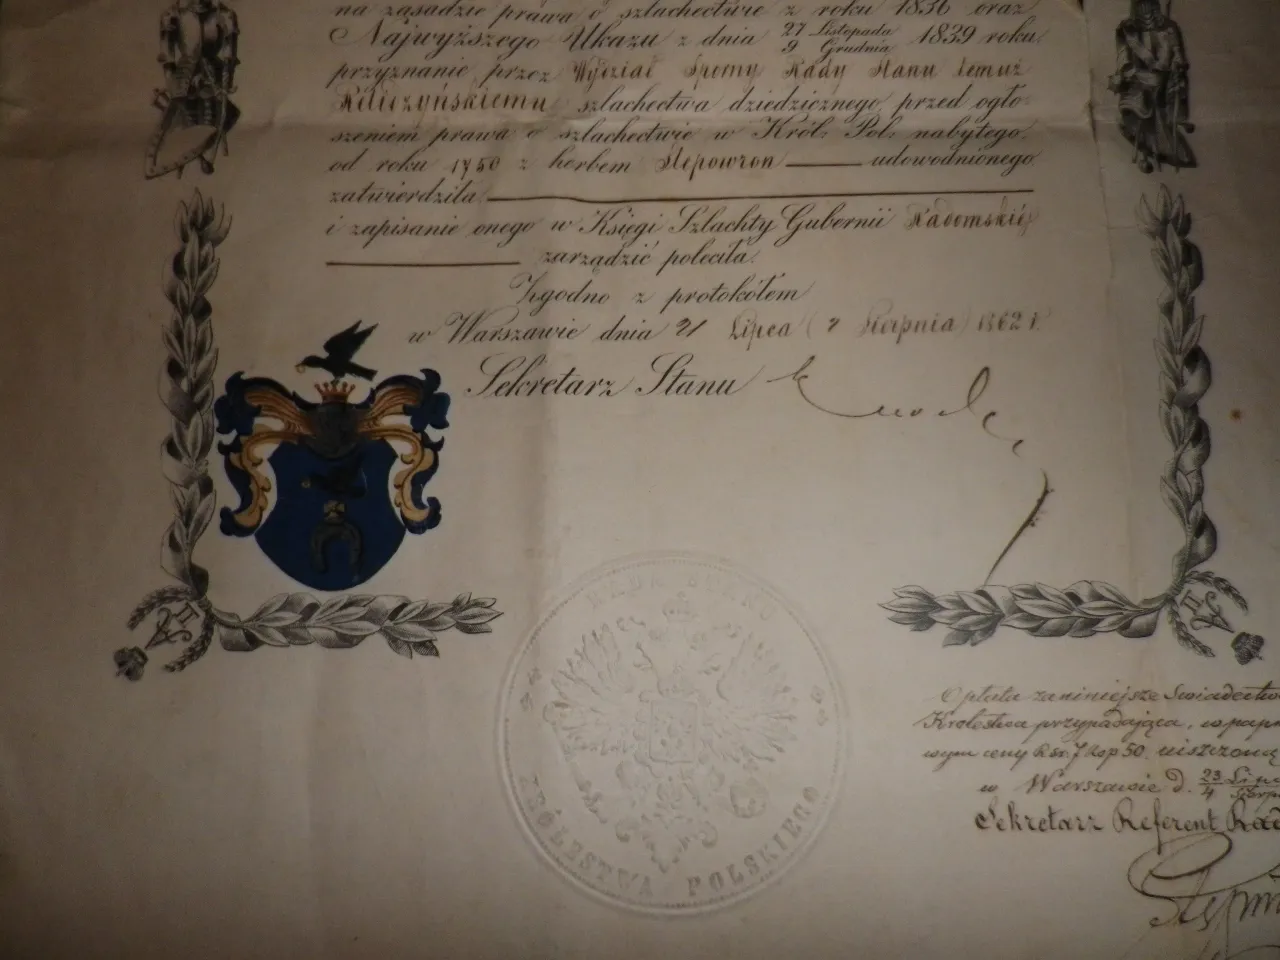 na zasadzie prawa o szlachectwie z roku 1836 oraz
Najwyższego Ukazu z dnia 27 Listopada / 9 Grudnia 1839 roku,
przyznanie przez Wydział Sporny Rady Stanu temuż
szlachectwa dziedzicznego, przed ogło-
szeniem prawa o szlachectwie w Król: Pol: nabytego,
od roku 1780 z herbem Slepowron udowodnionego,
zatwierdziła.
i zapisanie onego w Księgi Szlachty Gubernii Radomskiéj
zarządzić poleciła.
Zgodno z protokółem
w Warszawie dnia 21 Lipca (2 Sierpnia) 1862 r.
Sekretarz Stanu
RADA STANU
KRÓLESTWA POLSKIEGO
Opłata za niniejsze Świadectwo
Królestwa przypadająca, w pap
wym ceny Rsr. 7 kop 50. uiszczoną
w Warszawie d. 23 Lip / 4 Sierp
Sekretarz Referent Rad